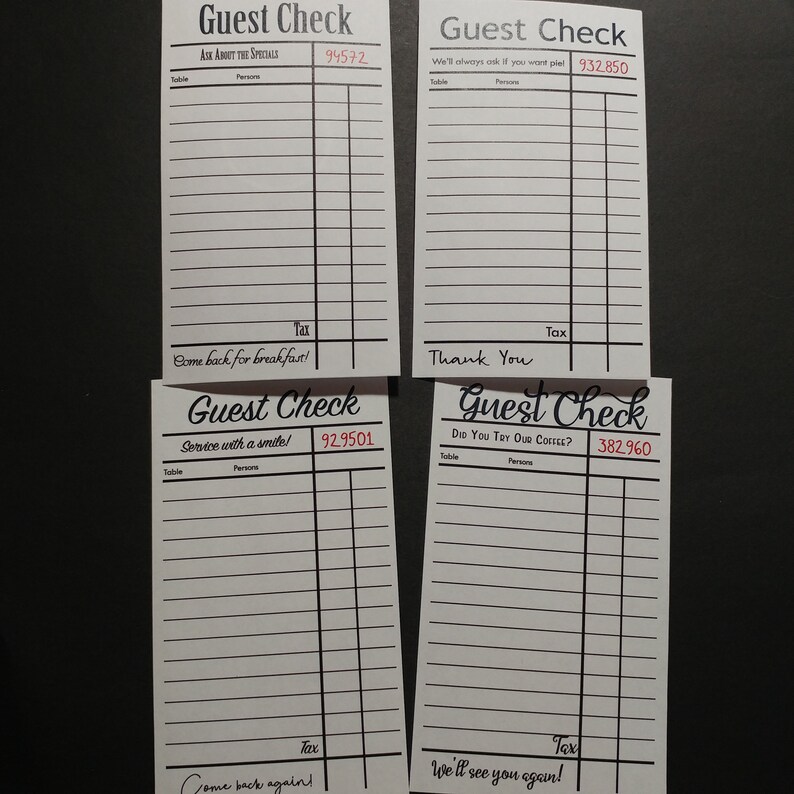 Guest Check
Ask About the Specials 94572
Table Persons
Tax
Come back for breakfast!
Guest Check
We'll always ask if you want pie! 932850
Table Persons
Tax
Thank You
Guest Check
Service with a smile! 929501
Table Persons
Tax
Come back again!
Guest Check
Did You Try Our Coffee? 382960
Table Persons
Tax
We'll see you again!